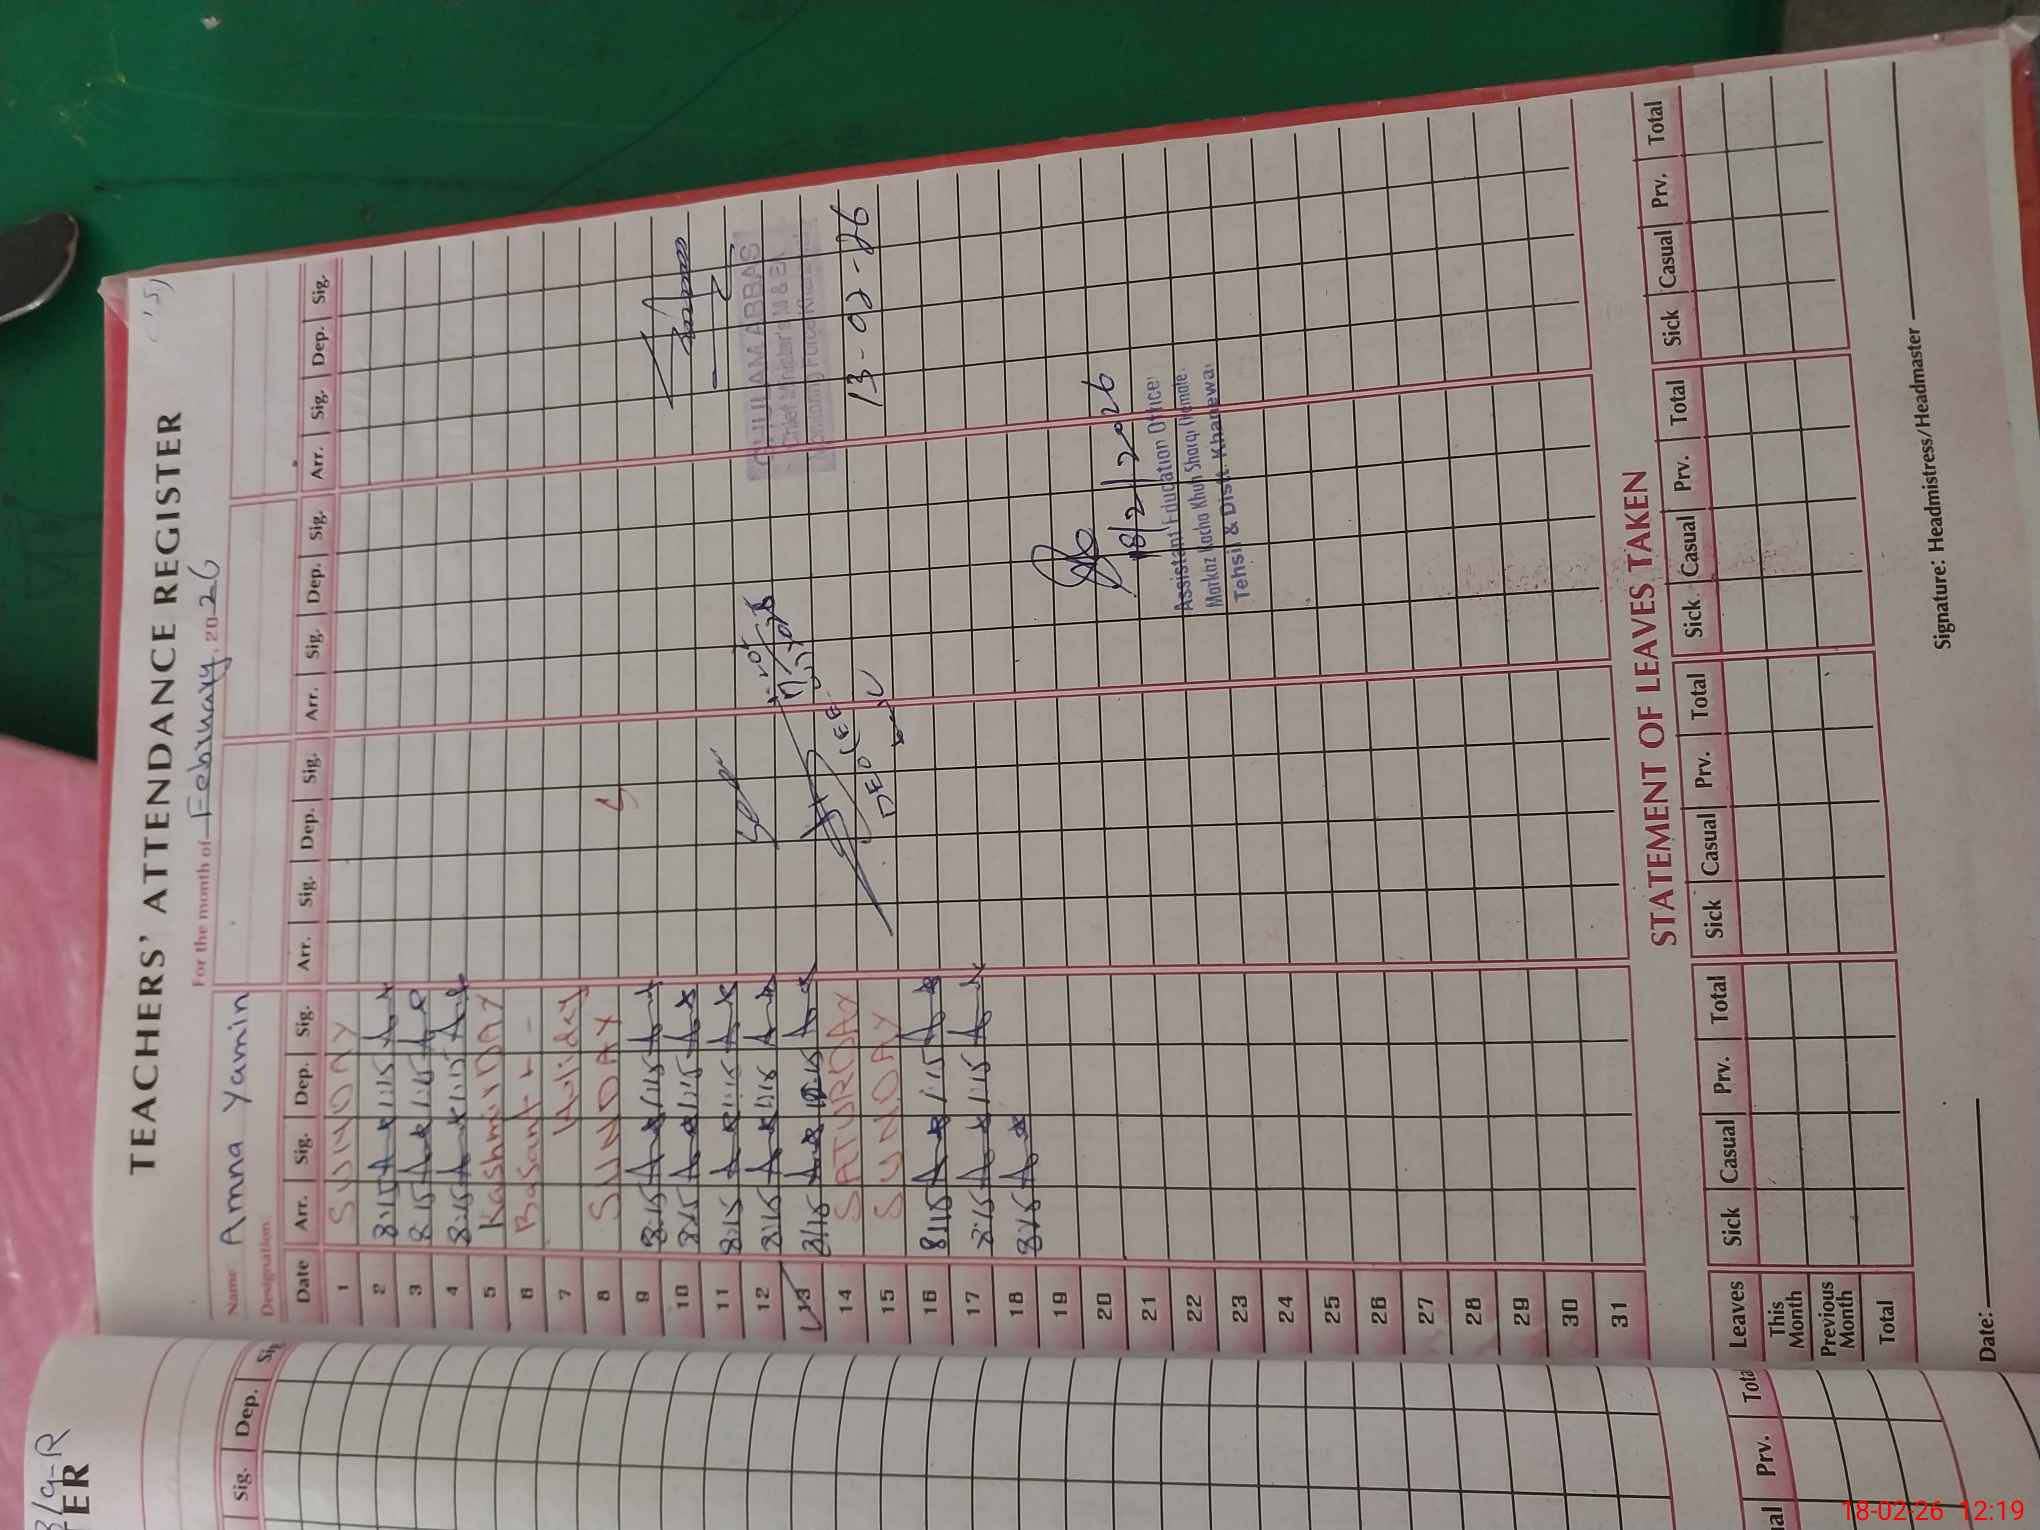 TEACHERS' ATTENDANCE REGISTER
For the month of February, 2026
Name: Amna Yamin
Designation
Date Arr. Sig. Dep. Sig. Arr. Sig. Dep. Sig. Arr. Sig. Dep. Sig. Arr. Sig. Dep. Sig.
1 SUNDAY
2 8:15 1:15
3 8:15 1:15
4 8:15 1:15
5 Kashmir DAY
6 Basant
7 Holiday
8 SUNDAY
9 8:15 1:15
10 8:15 1:15
11 8:15 1:15
12 8:15 1:15
13 8:15
14 SATURDAY
15 SUNDAY
16 8:15 1:15
17 8:15 1:15
18 8:15
19
20
21
22
23
24
25
26
27
28
29
30
31
GHULAM ABBAS
Chief Minister's M & E
Monitoring Force
13-02-26
18/2/2026
Assistant Education Officer
Markaz Kacha Khuh Sharqi (Female)
Tehsil & Distt. Khanewal
STATEMENT OF LEAVES TAKEN
Leaves Sick Casual Prv. Total Sick Casual Prv. Total Sick Casual Prv. Total Sick Casual Prv. Total
This Month
Previous Month
Total
Date:
Signature: Headmistress/Headmaster
TER
Sig. Dep. Sig
Prv. Total
18-02-26 12:19